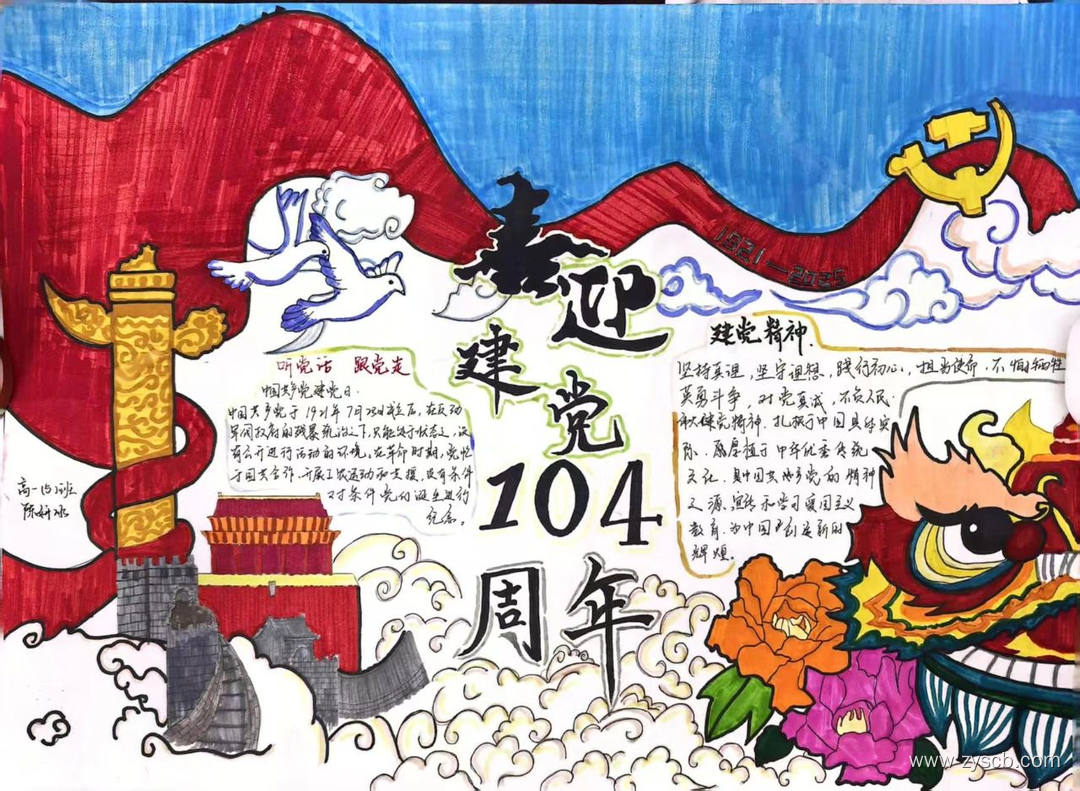 喜迎
建党
104
周年
1921—2025
听党话 跟党走
中国共产党建党日.
中国共产党于1921年7月23日成立后,在反动
军阀政府的残暴统治之下,只能处于状态,没
有公开进行活动的环境,在革命时期,党忙
于国共合作、开展工农运动和支援,没有条件
对条件党的诞生进行
纪念。
高一15班
建党精神.
坚持真理,坚守理想,践行初心,担当使命,不怕牺牲
英勇斗争,对党真诚,不负人民
建党精神,扎根于中国具体实
际、厚植于中华优秀传统
文化,是中国共产党的精神
之源,宣传和学习爱国主义
教育,为中国创造新的
辉煌。
www.zyscb.com